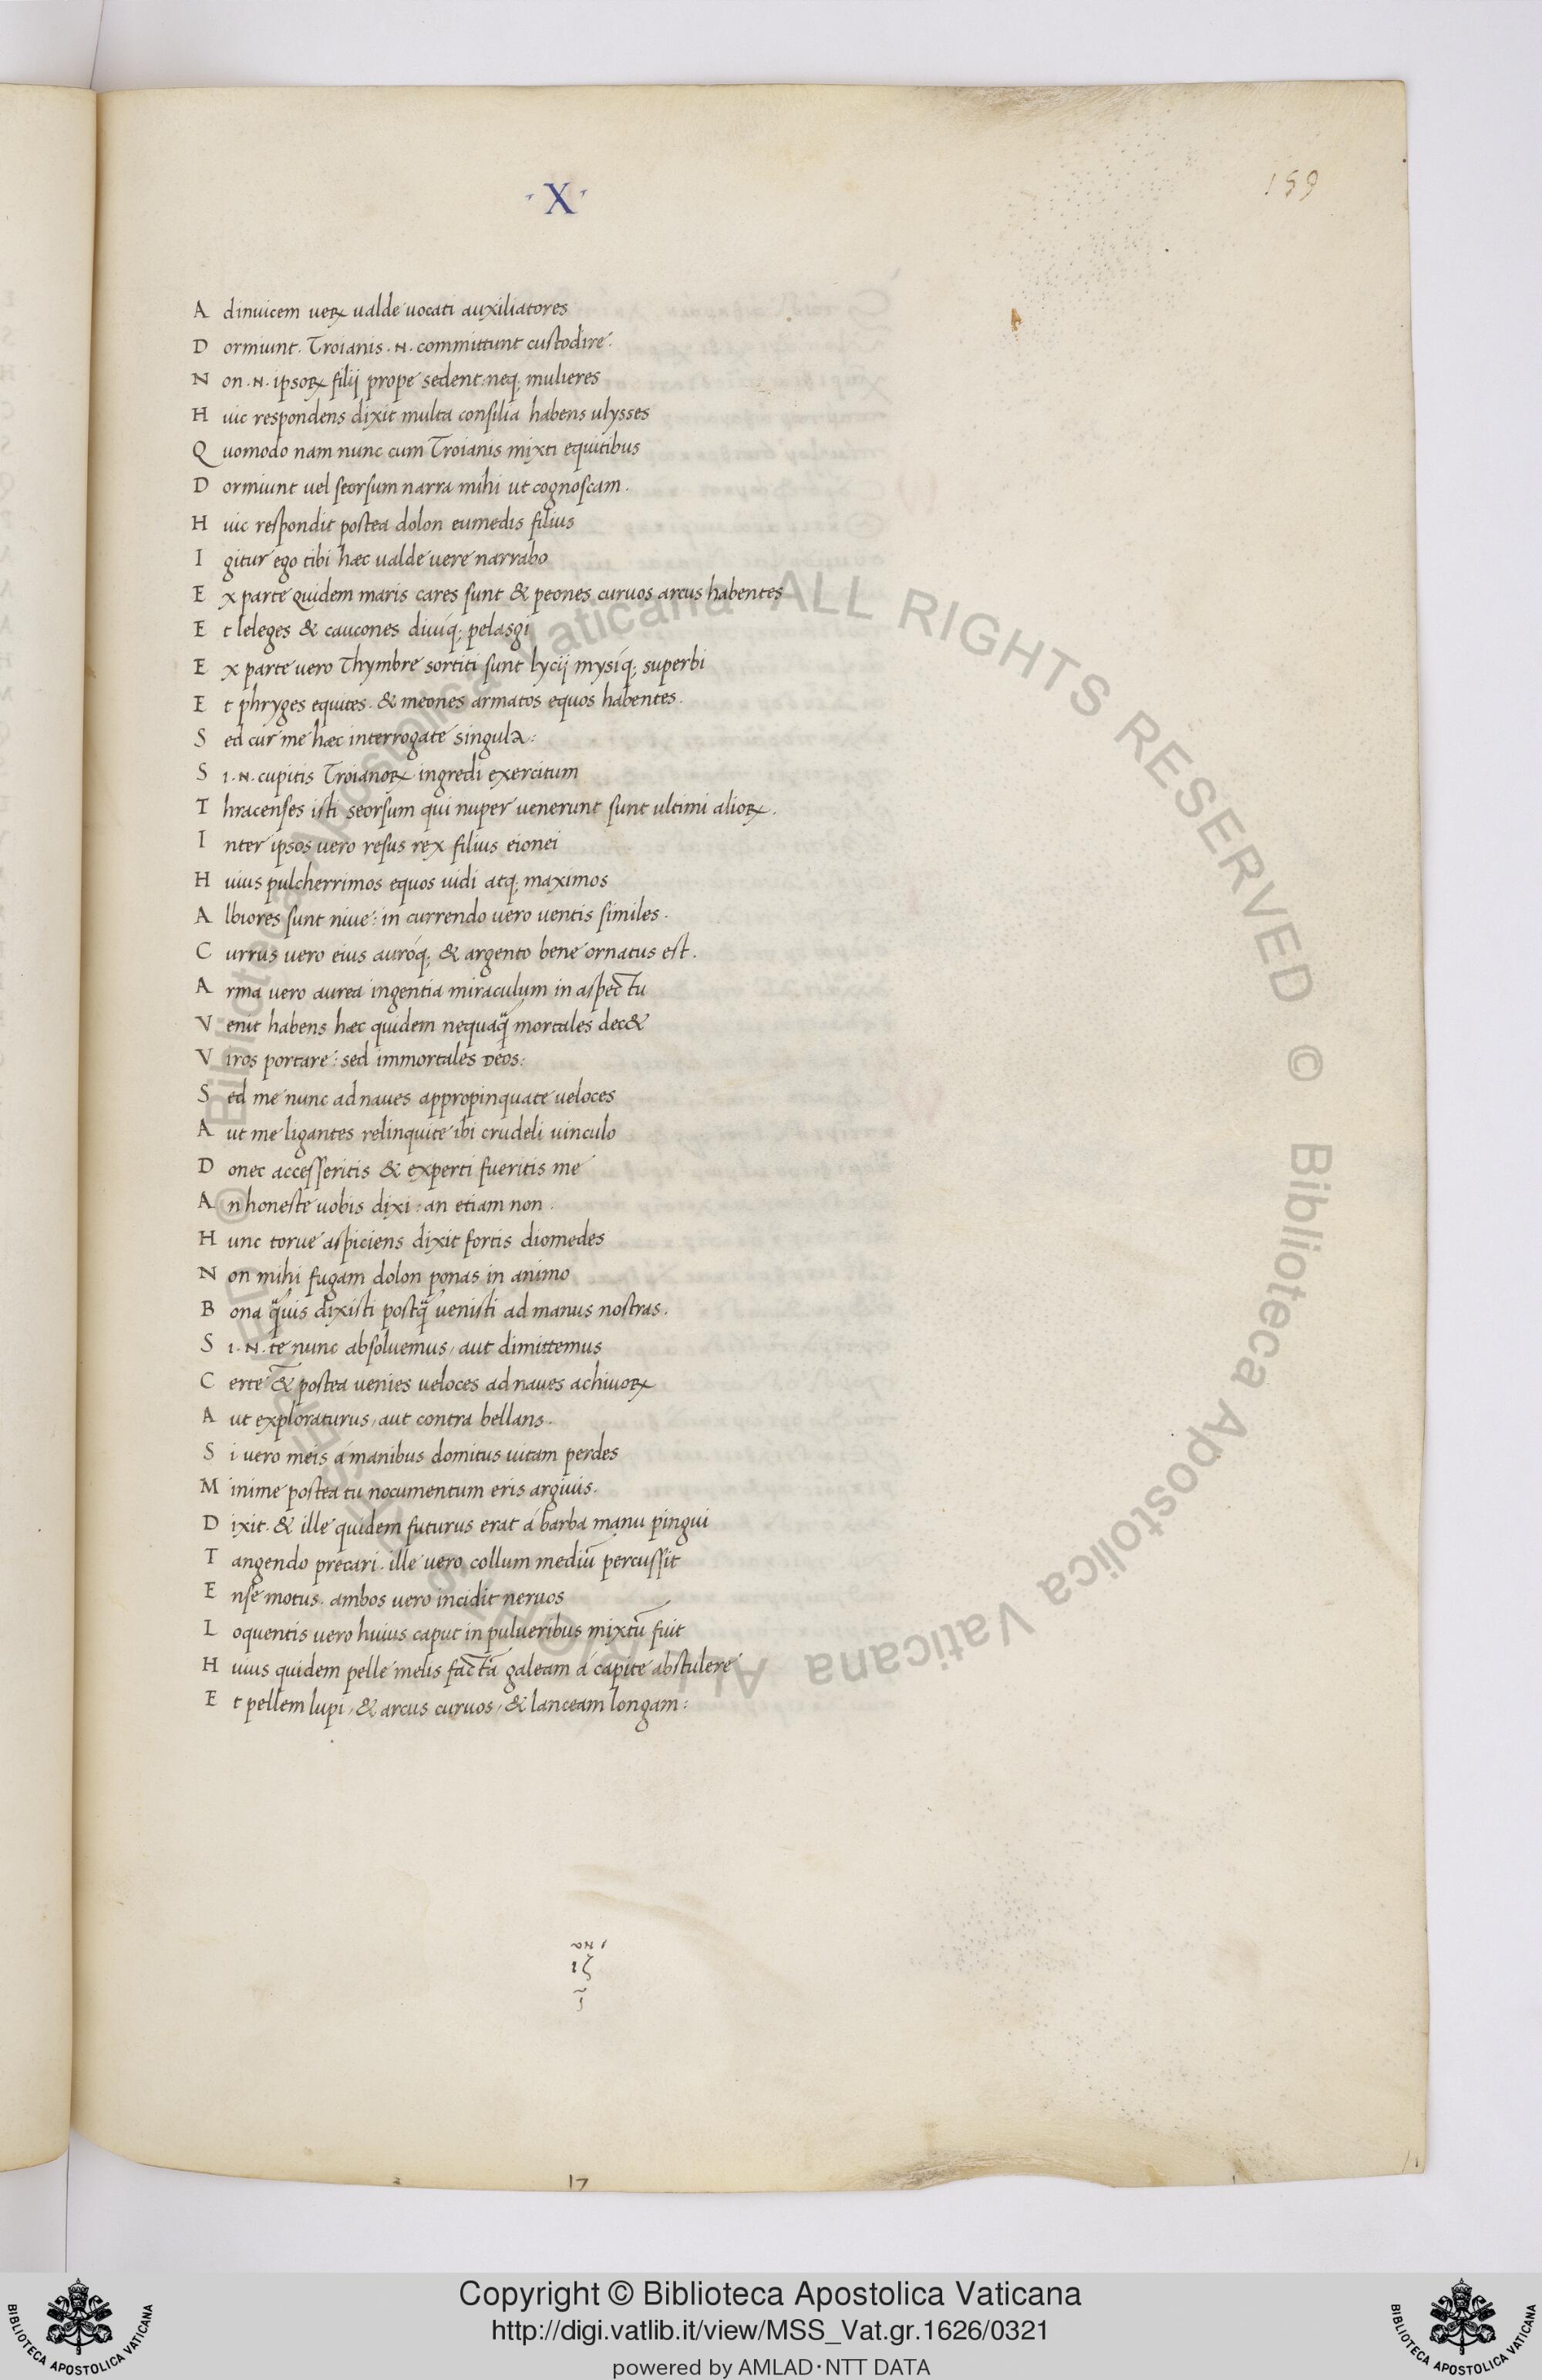 ·X·
159
A dinuicem ueꝝ ualde uocati auxiliatores
D ormiunt. Troianis .N. committunt custodire.
N on .N. ipsoꝝ filij prope sedent: neq; mulieres
H uic respondens dixit multa consilia habens ulysses
Q uomodo nam nunc cum Troianis mixti equitibus
D ormiunt uel seorsum narra mihi ut cognoscam.
H uic respondit postea dolon eumedis filius
I gitur ego tibi hæc ualde uere narrabo
E x parte quidem maris cares sunt & peones curuos arcus habentes
E t leleges & caucones diuiq; pelasgi
E x parte uero Thymbre sortiti sunt lycij mysiq; superbi
E t phryges equites. & meones armatos equos habentes.
S ed cur me hæc interrogate singula:
S i .N. cupitis Troianoꝝ ingredi exercitum
T hracenses isti seorsum qui nuper uenerunt sunt ultimi alioꝝ.
I nter ipsos uero resus rex filius eionei
H uius pulcherrimos equos uidi atq; maximos
A lbiores sunt niue: in currendo uero uentis similes.
C urrus uero eius auroq; & argento bene ornatus est.
A rma uero aurea ingentia miraculum in aspectu
V enit habens hæc quidem nequaq̃ mortales dec&
V iros portare: sed immortales DEOS:
S ed me nunc ad naues appropinquate ueloces
A ut me ligantes relinquite ibi crudeli uinculo
D onec accesseritis & experti fueritis me
A n honeste uobis dixi: an etiam non.
H unc torue aspiciens dixit fortis diomedes
N on mihi fugam dolon ponas in animo
B ona q̃uis dixisti postq̃ uenisti ad manus nostras.
S i .N. te nunc absoluemus, aut dimittemus
C erte & postea uenies ueloces ad naues achiuoꝝ
A ut exploraturus, aut contra bellans.
S i uero meis á manibus domitus uitam perdes
M inime postea tu nocumentum eris argiuis.
D ixit. & ille quidem futurus erat á barba manu pingui
T angendo precari. ille uero collum mediū percussit
E nse motus. ambos uero incidit neruos
L oquentis uero huius caput in pulueribus mixtū fuit
H uius quidem pelle melis factā galeam á capite abstulere
E t pellem lupi, & arcus curuos, & lanceam longam:
ιζ
17
© Biblioteca Apostolica Vaticana ALL RIGHTS RESERVED © Biblioteca Apostolica Vaticana ALL RIGHTS RESERVED
Copyright © Biblioteca Apostolica Vaticana
http://digi.vatlib.it/view/MSS_Vat.gr.1626/0321
powered by AMLAD·NTT DATA
BIBLIOTECA APOSTOLICA VATICANA
BIBLIOTECA APOSTOLICA VATICANA